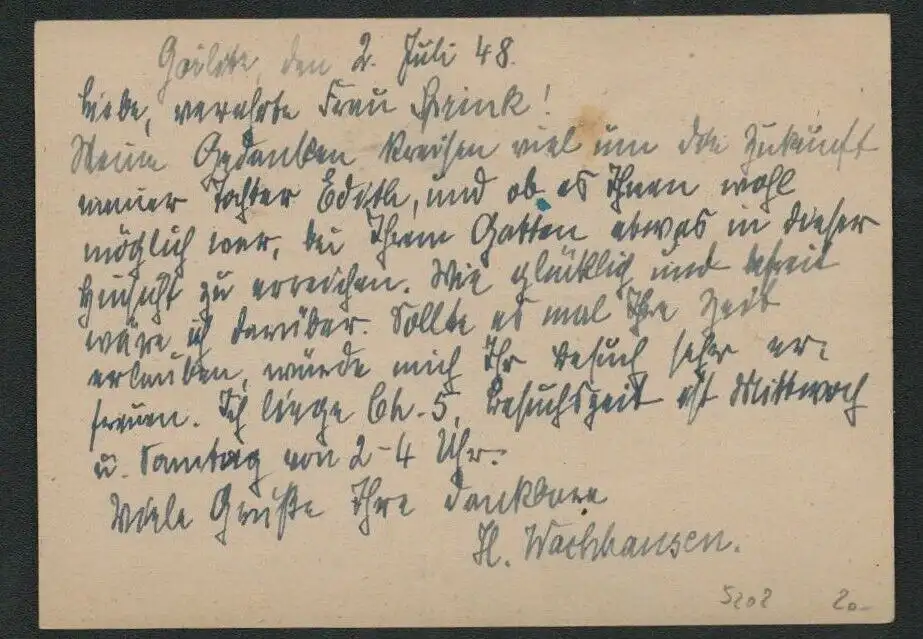 Görlitz, den 2. Juli 48.
Liebe, verehrte Frau Brink!
Meine Gedanken kreisen viel um die Zukunft
meiner Tochter Edith, und ob es Ihnen wohl
möglich war, bei Ihrem Gatten etwas in dieser
Hinsicht zu erreichen. Wie glücklich und befreit
wäre ich darüber. Sollte es mal Ihre Zeit
erlauben, würde mich Ihr Besuch sehr er-
freuen. Ich liege Ch. 5, Besuchszeit ist Mittwoch
u. Samstag von 2-4 Uhr.
Viele Grüße Ihre dankbare
H. Wachhausen.
5202 20-